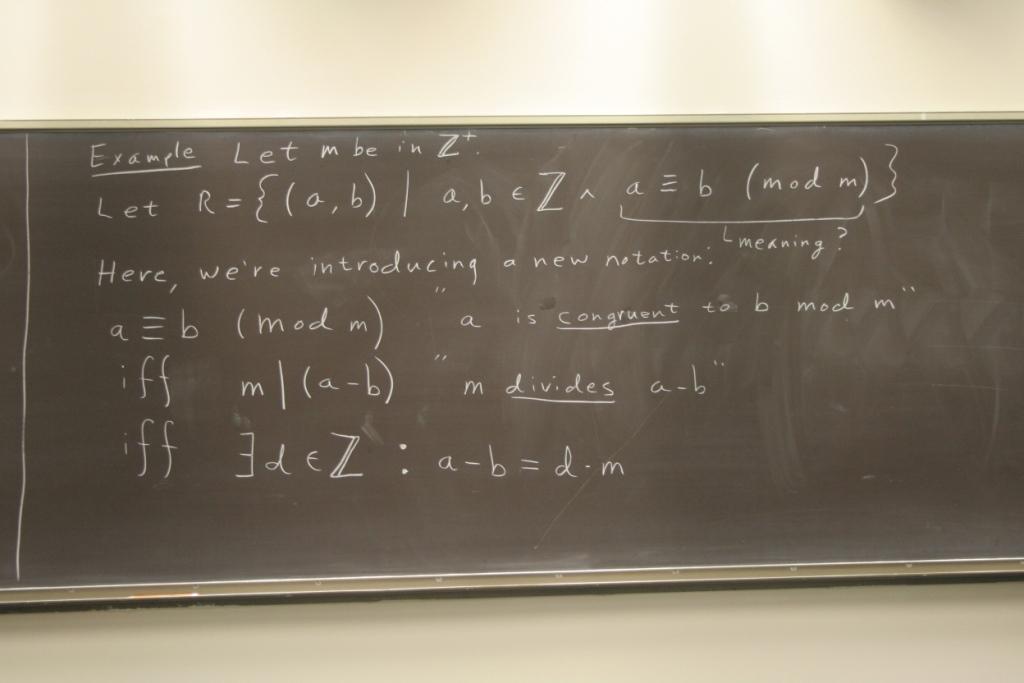 Example Let m be in ℤ⁺.
Let R = {(a, b) | a, b ∈ ℤ ∧ a ≡ b (mod m)}
meaning?
Here, we're introducing a new notation:
a ≡ b (mod m) "a is congruent to b mod m"
iff m | (a-b) "m divides a-b"
iff ∃d ∈ ℤ : a-b = d·m